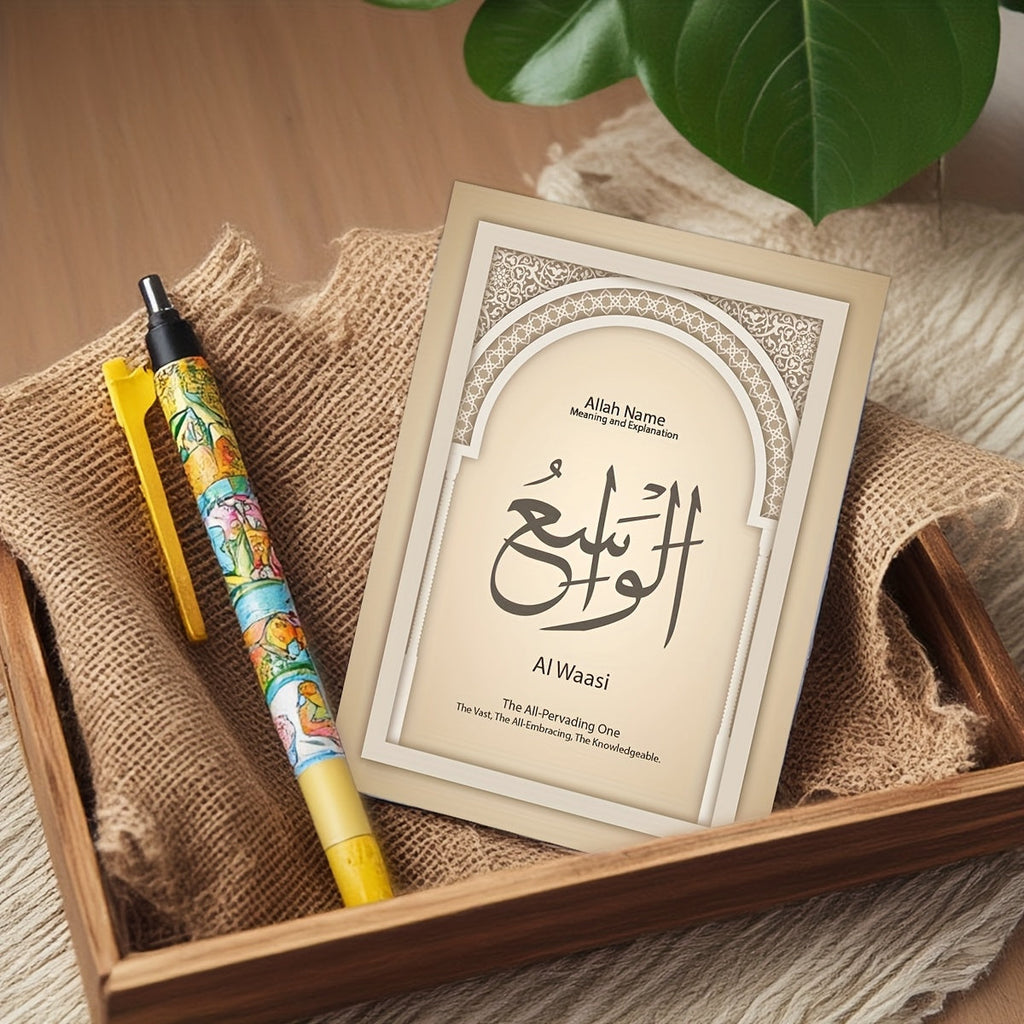 Allah Name
Meaning and Explanation
الْوَاسِعُ
Al Waasi
The All-Pervading One
The Vast, The All-Embracing, The Knowledgeable.